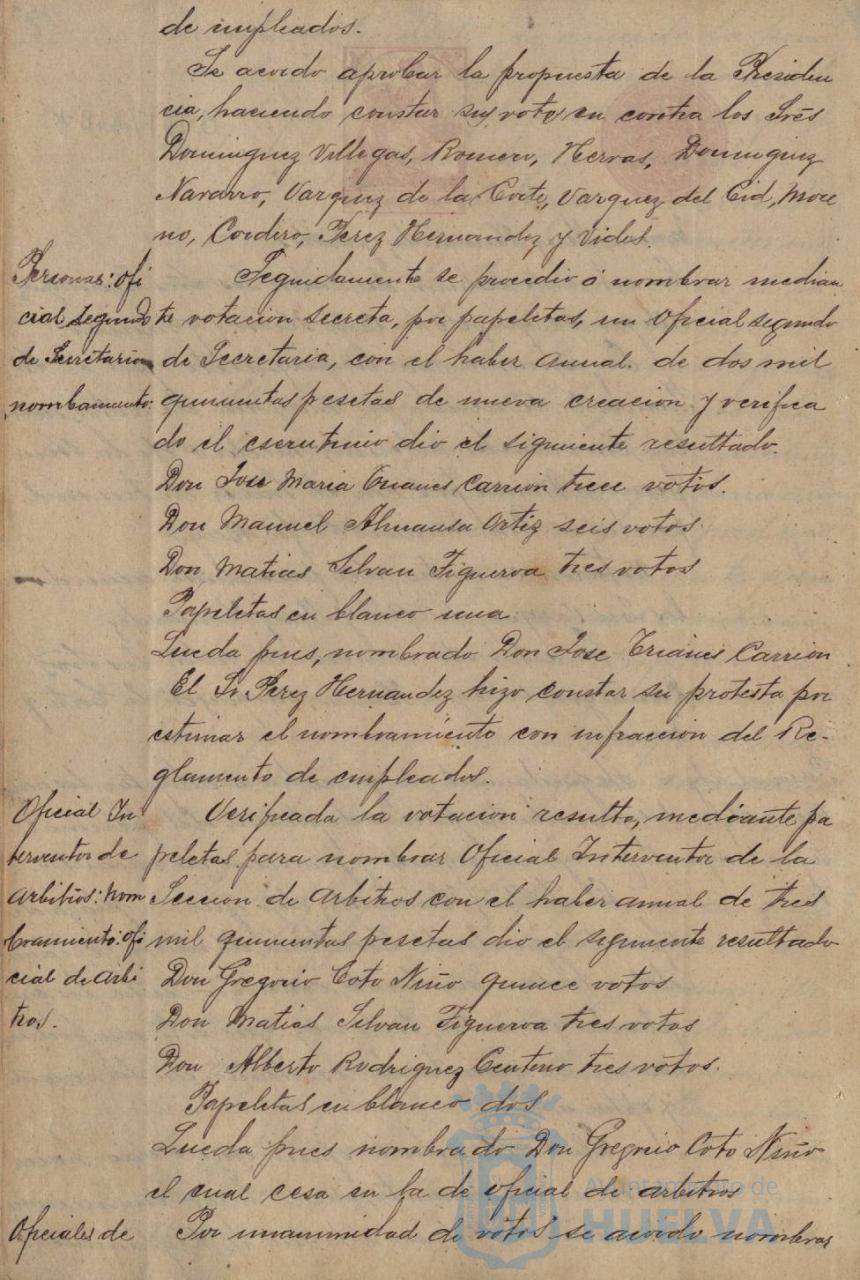 de empleados.
Se acordo aprobar la propuesta de la Presiden
cia, haciendo constar su voto en contra los Srês
Dominguez Villegas, Romero, Hervas, Dominguez
Navarro, Vazquez de la Corte, Vazquez del Cid, More
no, Cordero, Perez Hernandez y Vides.
Personas: Ofi
cial segundo
de Secretaria
nombamiento:
Seguidamente se procedio á nombrar median
te votacion secreta, por papeletas, un Oficial segundo
de Secretaria, con el haber anual de dos mil
quinientas pesetas de nueva creacion y verifica
do el escrutinio dio el siguiente resultado.
Don Jose Maria Trianes Carrion trece votos.
Don Manuel Almansa Ortiz seis votos.
Don Matias Silvan Figueroa tres votos
Papeletas en blanco una
Queda pues, nombrado Don Jose Trianes Carrion
El Sr Perez Hernandez hizo constar su protesta por
estimar el nombramiento con infraccion del Re-
glamento de empleados.
Oficial In
terventor de
Arbitrios: nom
bramiento: Ofi
cial de arbi
trios.
Verificada la votacion resulto, mediante pa
peletas para nombrar Oficial Interventor de la
Seccion de Arbitros con el haber anual de tres
mil quinientas pesetas dio el siguiente resultado
Don Gregorio Coto Niño quince votos
Don Matias Silvan Figueroa tres votos
Don Alberto Rodriguez Centeno tres votos.
Papeletas en blanco dos
Queda pues nombrado Don Gregorio Coto Niño
el cual cesa en la de oficial de arbitros
Oficiales de
Por unanimidad de votos se acordo nombrar
Ayuntamiento de
HUELVA